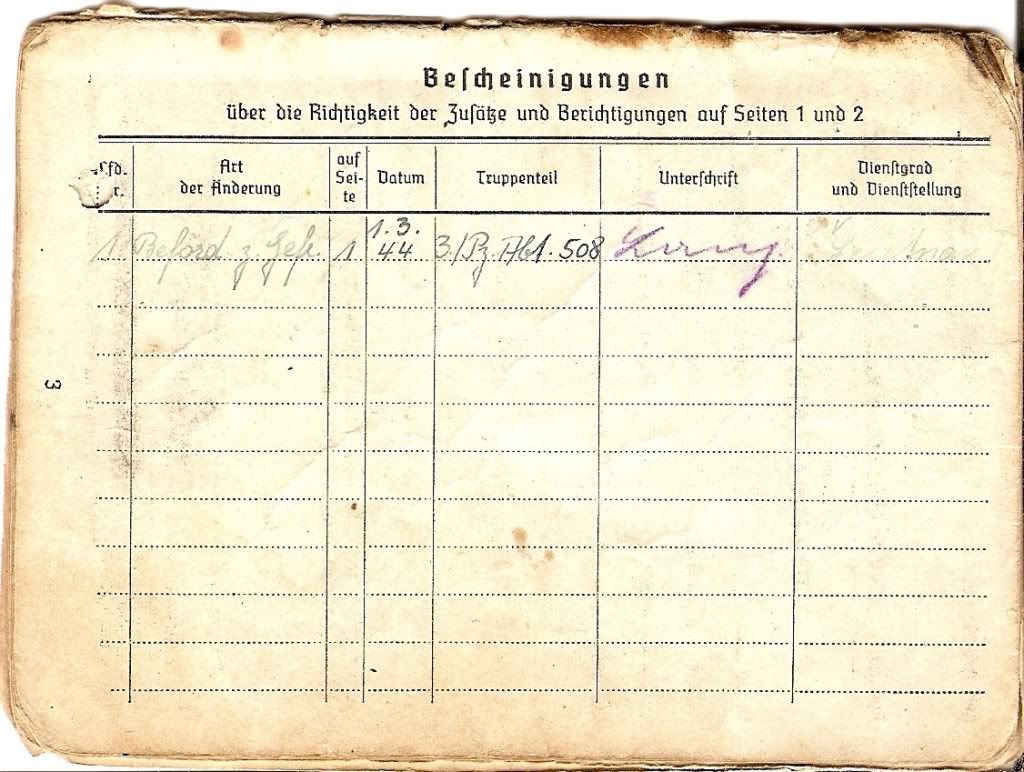 Bescheinigungen
über die Richtigkeit der Zusätze und Berichtigungen auf Seiten 1 und 2
Lfd. Nr.
Art der Änderung
auf Sei-te
Datum
Truppenteil
Unterschrift
Dienstgrad und Dienststellung
1 Beförd z. Gefr. 1 1.3.44 3/Pz Abt. 508
3